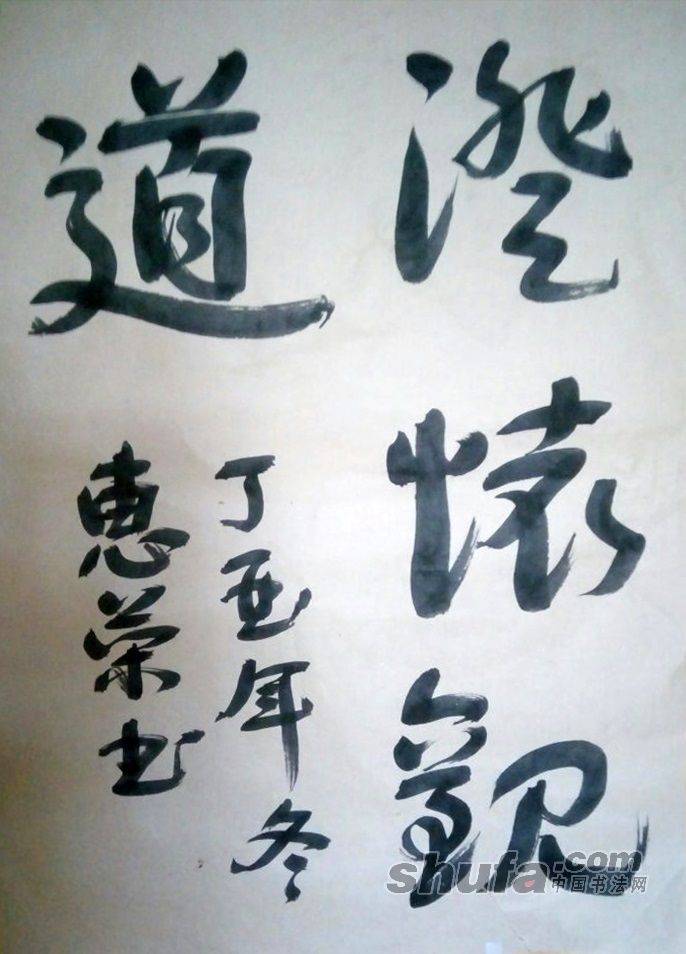 澄懷觀
道
丁酉年冬
惠荣书
shufa.com
中国书法网